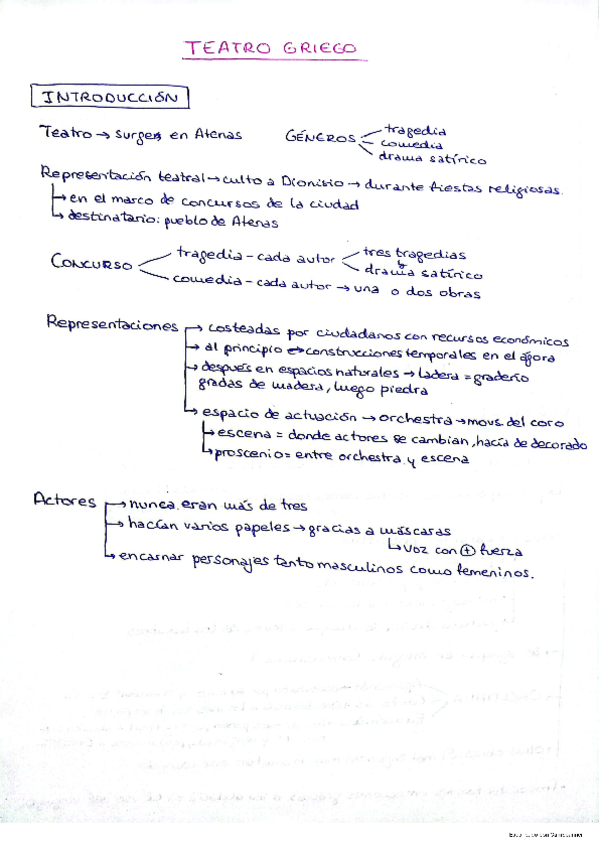 TEATRO GRIEGO
INTRODUCCIÓN
Teatro → surge en Atenas
GÉNEROS
tragedia
comedia
drama satírico
Representación teatral → culto a Dionisio → durante fiestas religiosas.
→ en el marco de concursos de la ciudad
→ destinatario: pueblo de Atenas
CONCURSO
tragedia - cada autor
tres tragedias
drama satírico
comedia - cada autor → una o dos obras
Representaciones → costeadas por ciudadanos con recursos económicos
→ al principio → construcciones temporales en el ágora
→ después en espacios naturales → ladera = graderío
gradas de madera, luego piedra
→ espacio de actuación → orchestra → movs. del coro
→ escena = donde actores se cambian, hacía de decorado
→ proscenio = entre orchestra y escena
Actores → nunca eran más de tres
→ hacían varios papeles → gracias a máscaras
→ voz con ⊕ fuerza
→ encarnar personajes tanto masculinos como femeninos.